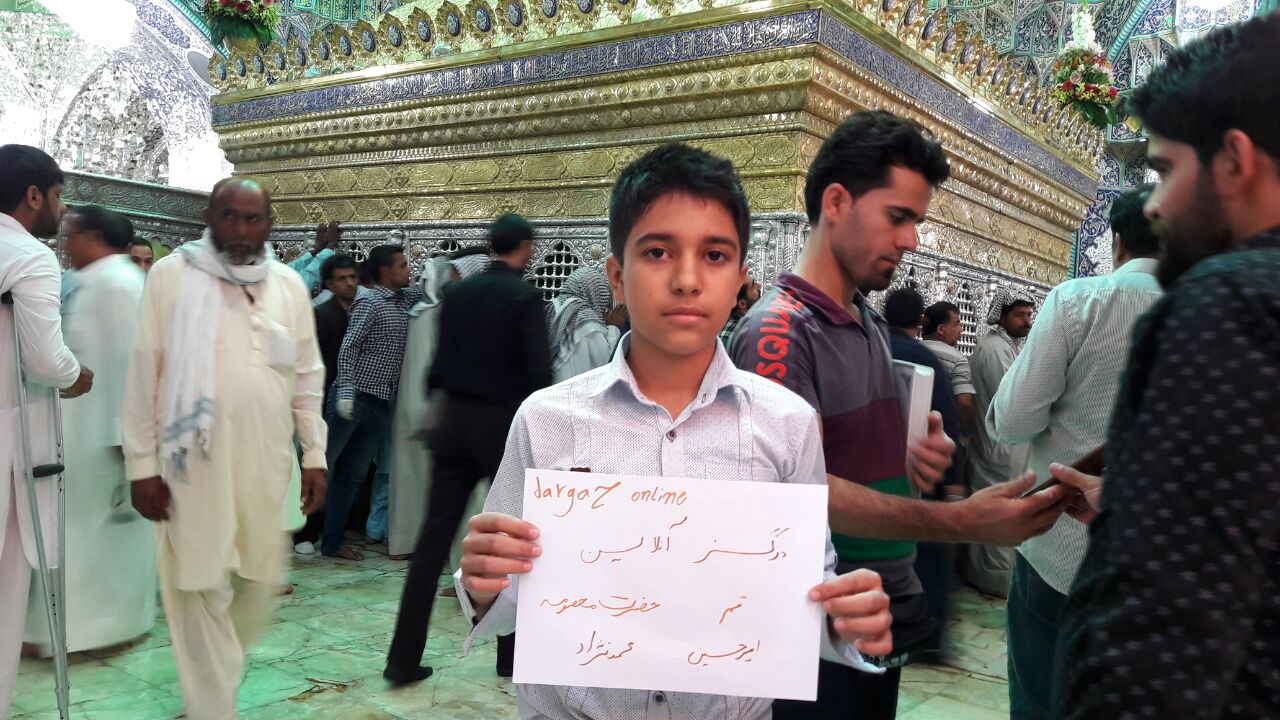 dargaz online
درگز آنلاین
قم حضرت معصومه
امیرحسین محمدنژاد
SQUARE